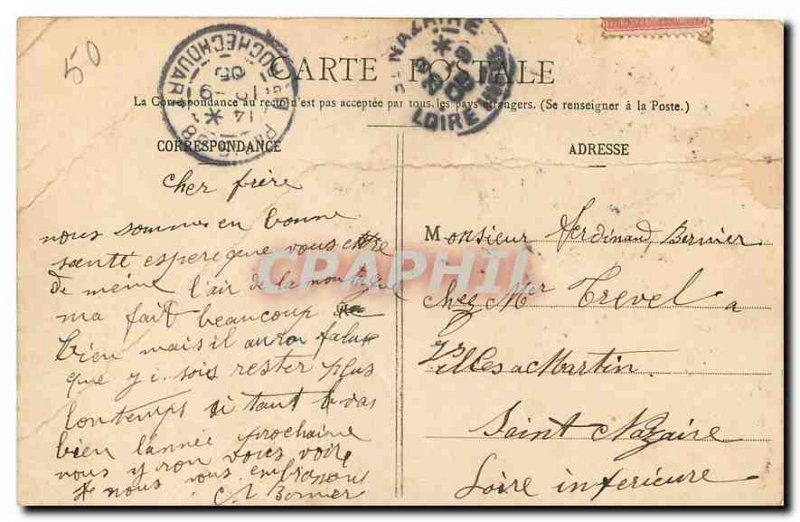 50
CARTE POSTALE
La Correspondance au recto n'est pas acceptée par tous les pays étrangers. (Se renseigner à la Poste.)
CORRESPONDANCE
cher frère
nous sommes en bonne
santé espere que vous etre
de meme l'air de la montagne
ma fait beaucoup
bien mais il auron falu
que y i sois rester plus
lontemps si tout vas
bien lannée prochaine
nous y ron vous voire
nous vous embrasons
Bernier
ADRESSE
Monsieur Ferdinand Bernier
chez Mr Trevel a
Villes a Martin
Saint Nazaire
Loire inferieure
ROCHECHOUART
14 * 18-9 05
ST NAZAIRE
LOIRE INFRE
CPAPHIL